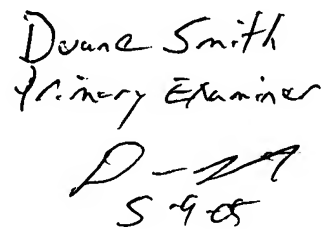 Duane Smith
Primary Examiner
5-9-05